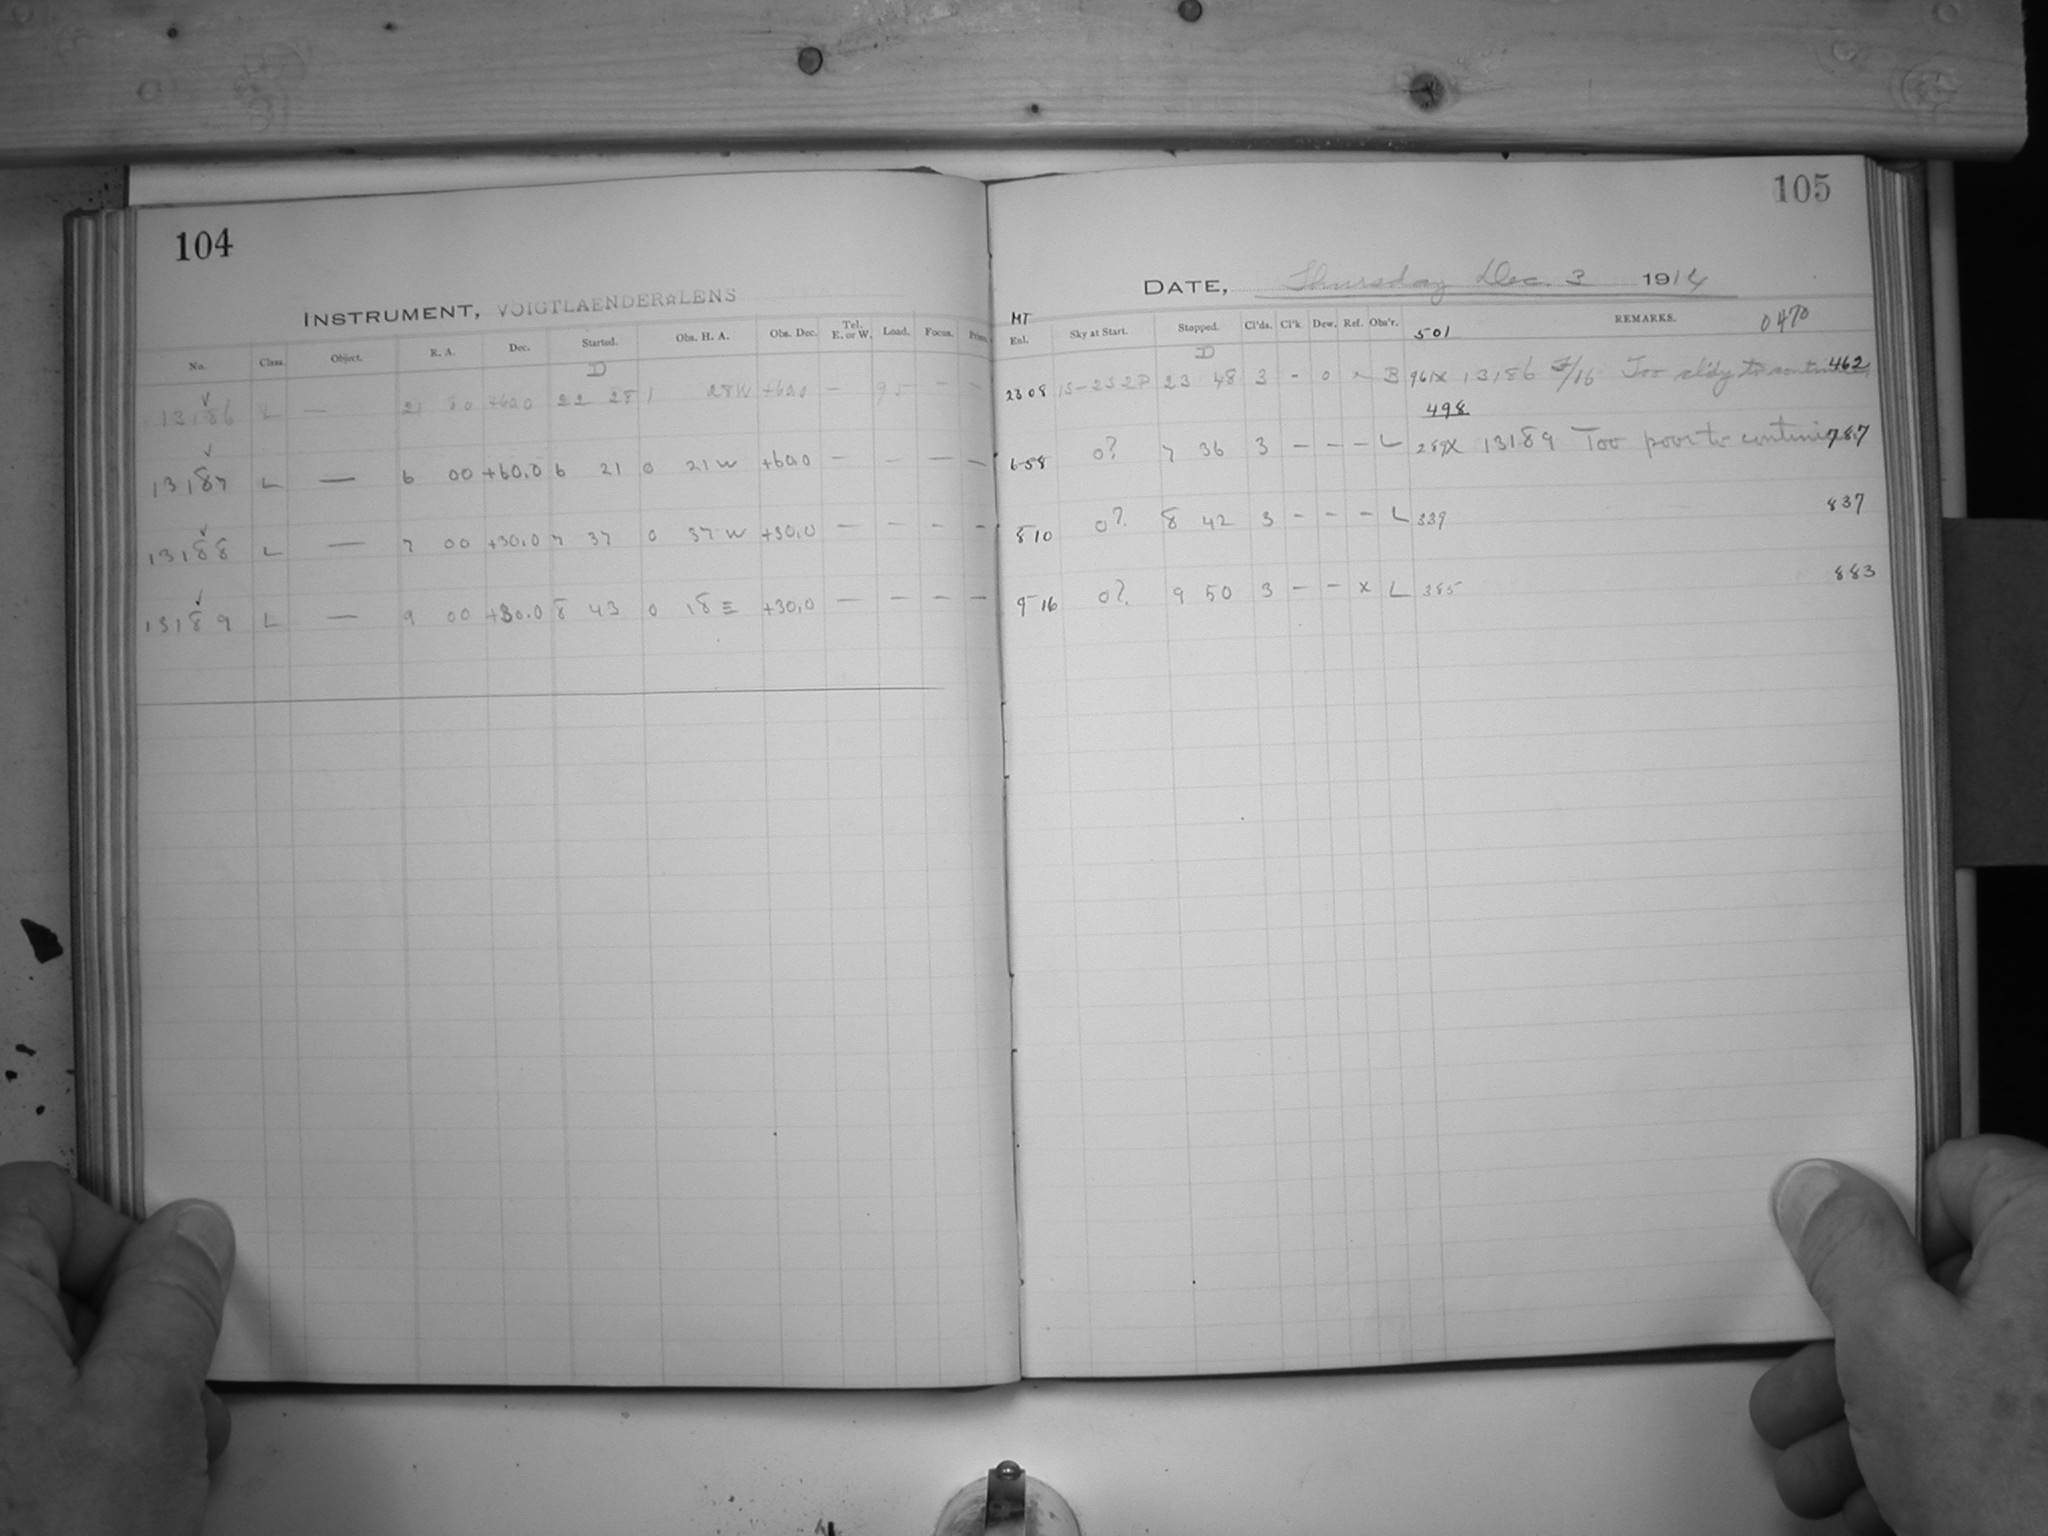 104
INSTRUMENT, VOIGTLAENDER LENS
No. Class. Object. R. A. Dec. Started. Obs. H. A. Obs. Dec. Tel. E. or W. Load. Focus.
D
13186 L — 21 00 +60.0 22 28 1 28W +60.0 — 95 — —
13187 L — 6 00 +60.0 6 21 0 21W +60.0 — — — —
13188 L — 7 00 +30.0 7 37 0 37W +30.0 — — — —
13189 L — 9 00 +30.0 8 43 0 18E +30.0 — — — —
105
DATE, Thursday Dec. 3 1914
MT 0470
Enl. Sky at Start. Stopped. Cl'ds. Cl'k. Dew. Ref. Obs'r. 501 REMARKS.
D
2308 23 48 3 - 0 - B 961x 13186 Too to 462
498
658 0? 7 36 3 — — — L 289x 13189 Too poor to continue. 787
810 0? 8 42 3 — — — L 339 837
916 0? 9 50 3 — — x L 385 883